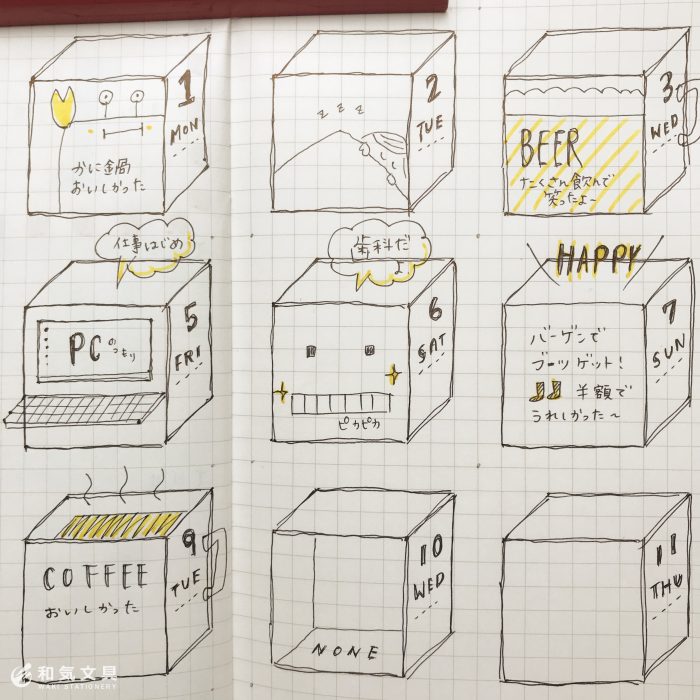 1
MON
かに鍋
おいしかった
z z z
2
TUE
3
WED
BEER
たくさん飲んで
笑ったよ~
仕事はじめ
PC のつもり
5
FRI
歯科だ
よ
6
SAT
ピカピカ
HAPPY
バーゲンで
ブーツゲット!
半額で
うれしかった~
7
SUN
COFFEE
おいしかった
9
TUE
10
WED
NONE
11
THU
和気文具
WAKI STATIONERY